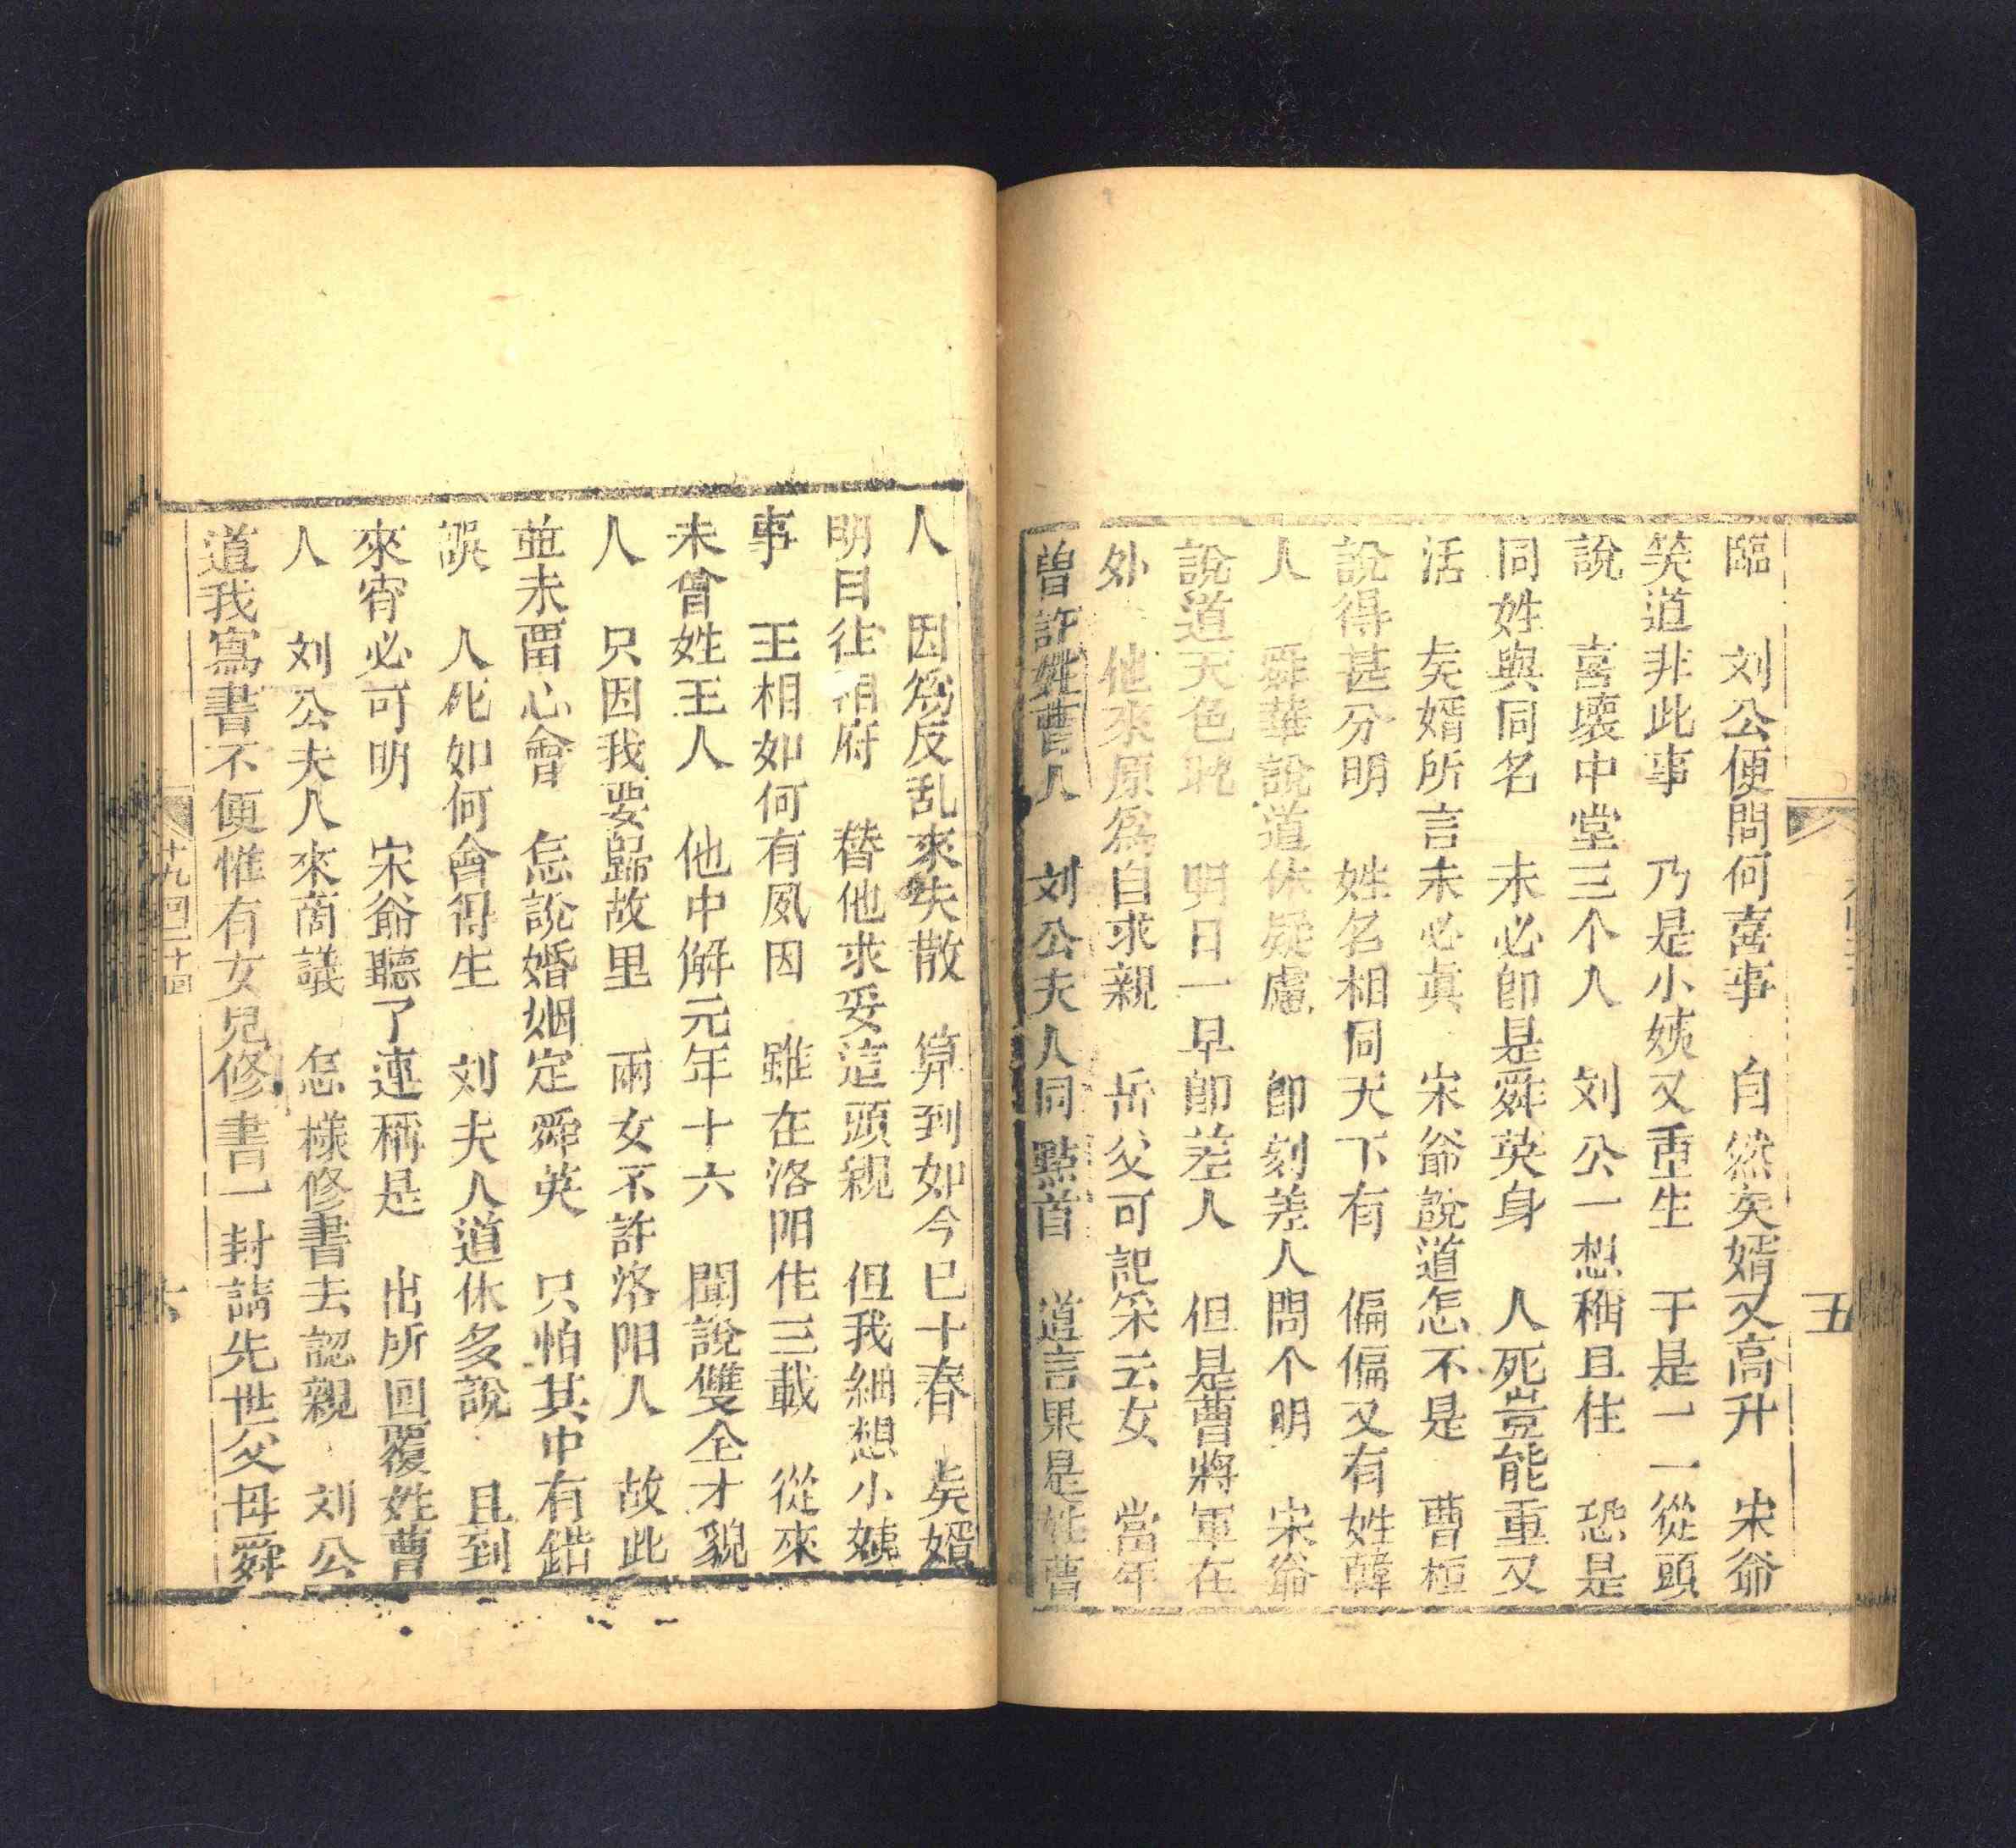 五
臨　刘公便問何喜事　自然矣婿又高升　宋爺
笑道非此事　乃是小姨又重生　于是一一從頭
說　喜壞中堂三个人　刘公一想稱且住　恐是
同姓與同名　未必卽是舜英身　人死豈能重又
活　矣婿所言未必眞　宋爺說道怎不是　曹桓
說得甚分明　姓名相同天下有　偏偏又有姓韓
人　舜華說道休疑慮　卽刻差人問个明　宋爺
說道天色晚　明日一早卽差人　但是曹將軍在
外　他來原爲自求親　岳父可記宋云女　當年
曾許姓曹人　刘公夫人同點首　道言果是姓曹
人　因為反乱來失散　算到如今已十春　矣婿
明日往相府　替他求妥這頭親　但我細想小姨
事　王相如何有風因　雖在洛阳作三載　從來
未會姓王人　他中解元年十六　聞說雙全才貌
人　只因我要歸故里　兩女不許洛阳人　故此
並未畱心會　怎說婚姻定舜英　只怕其中有錯
誤　人死如何會得生　刘夫人道休多說　且到
來宵必可明　宋爺聽了連稱是　出所回覆姓曹
人　刘公夫人來商議　怎樣修書去認親　刘公
道我寫書不便惟有女兒修書一封請先世父母舜
十九回二十回
六